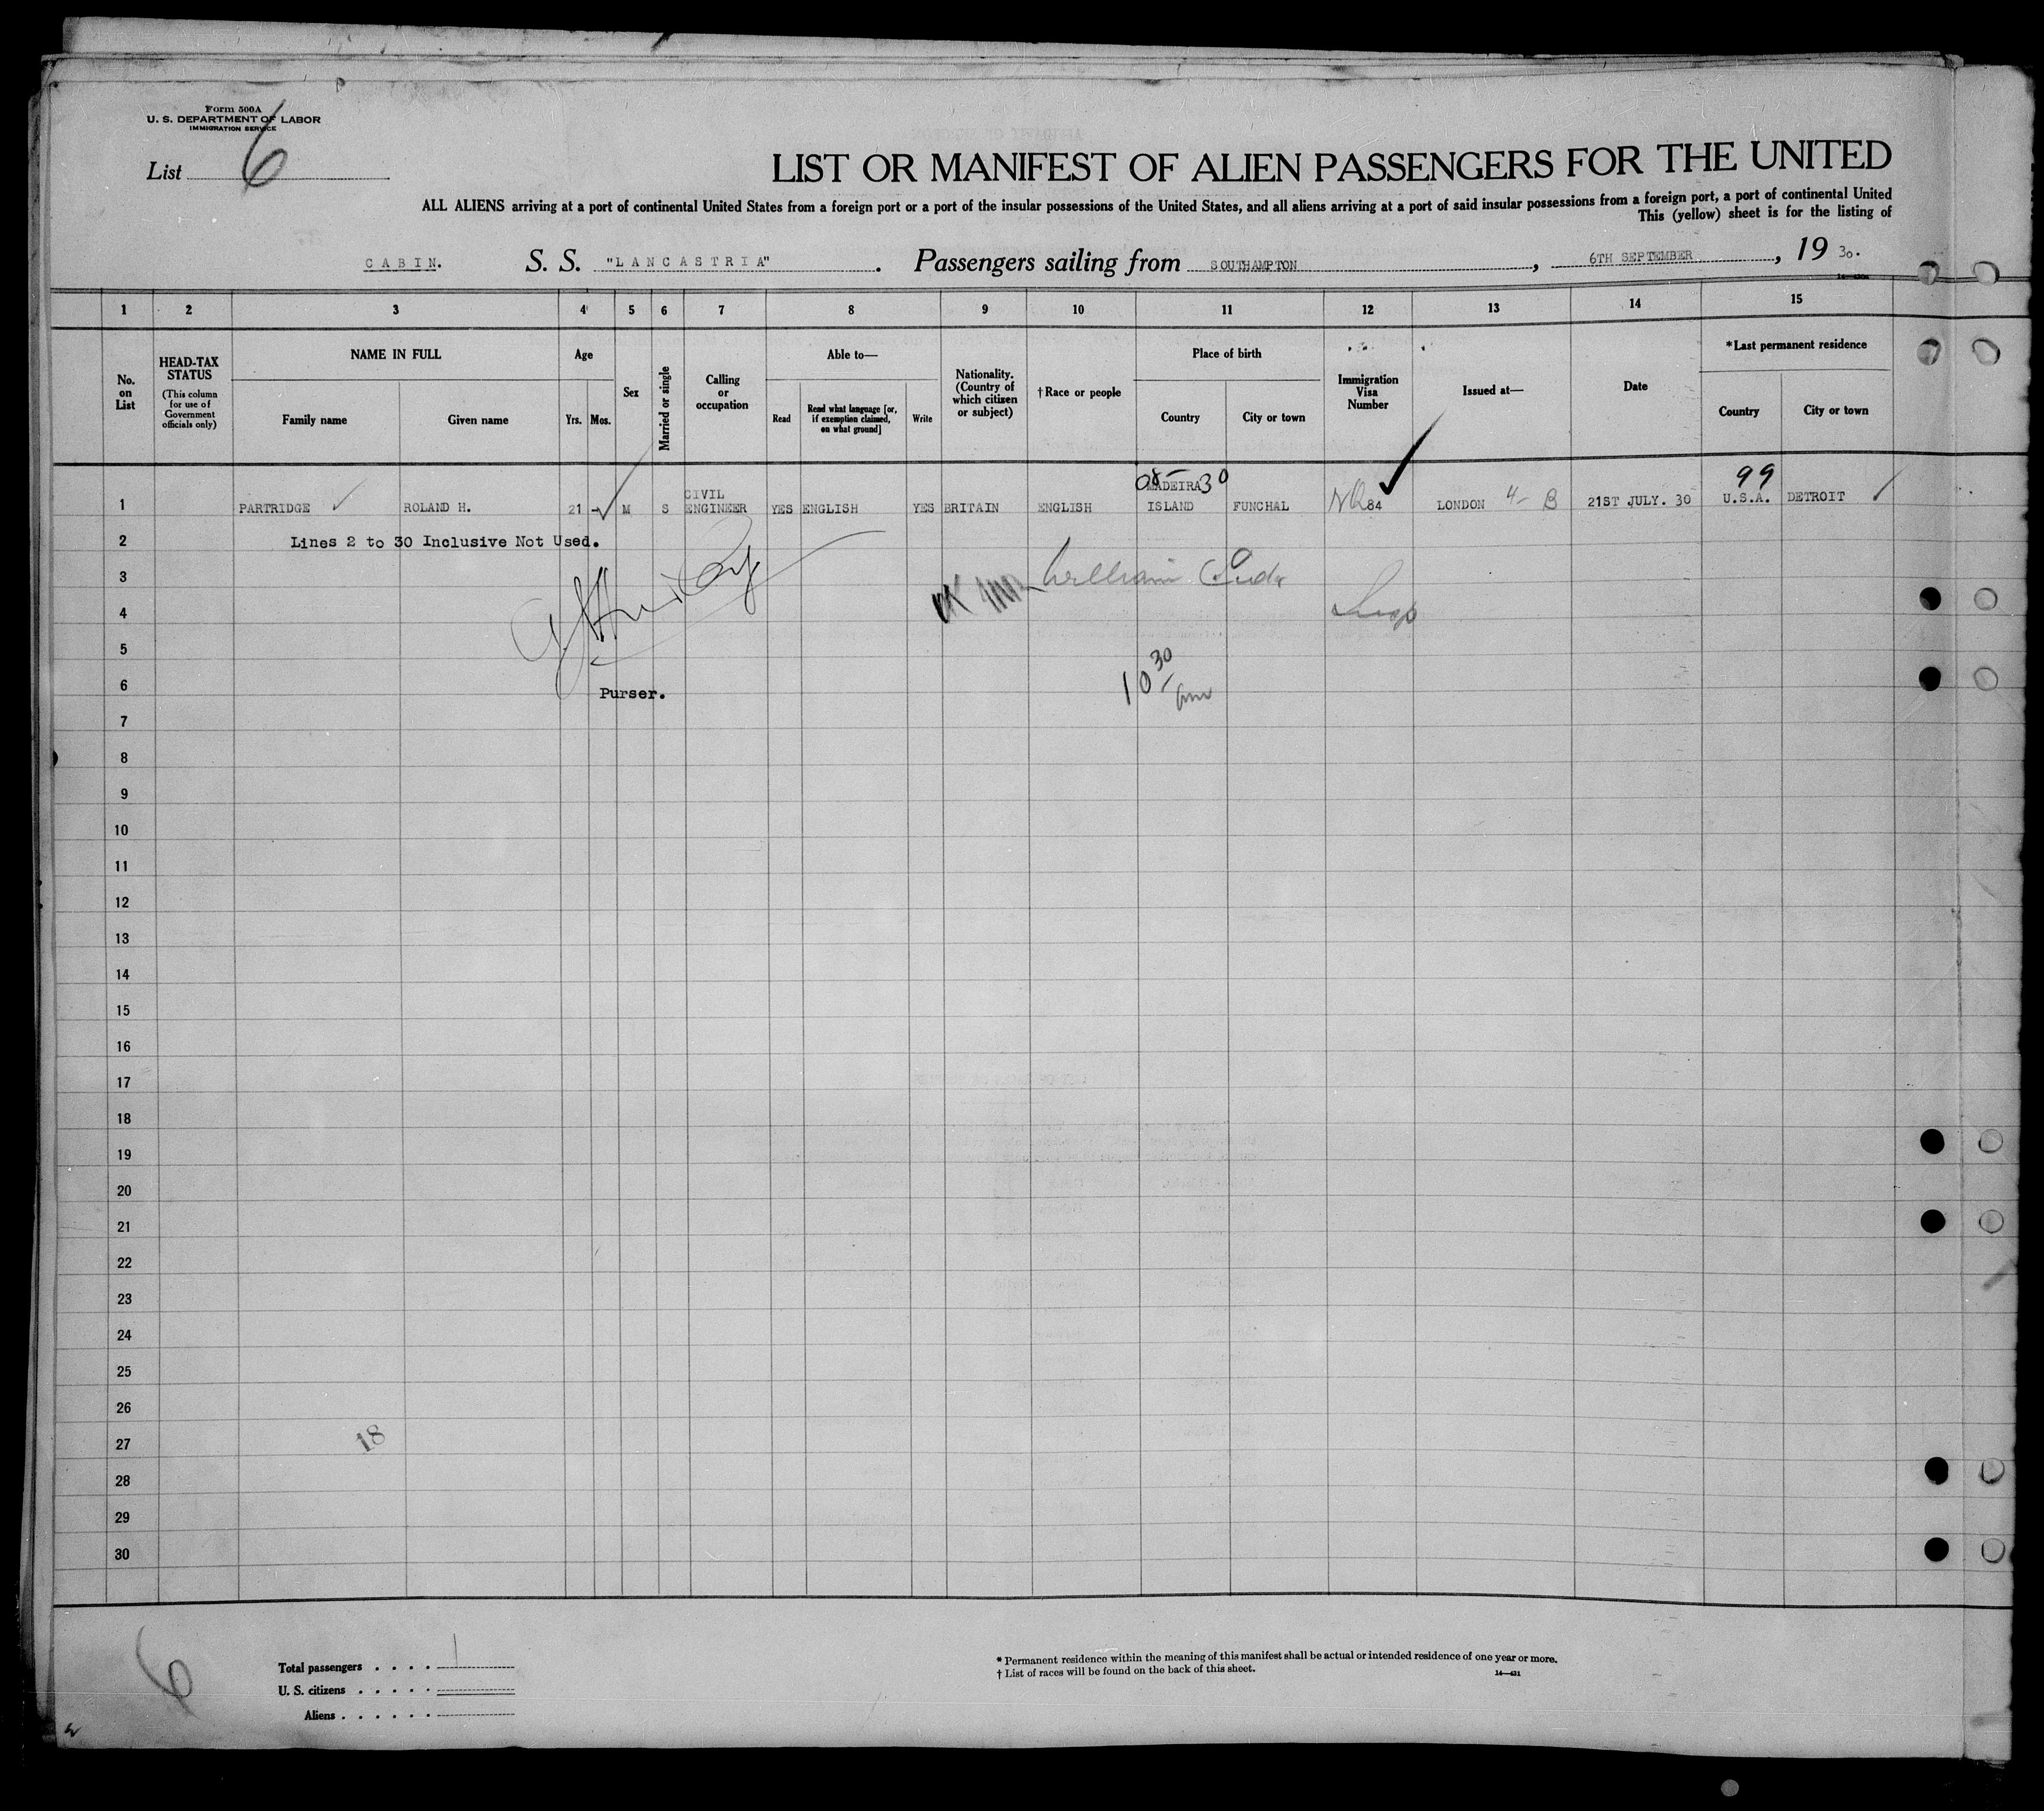 Form 500A
U. S. DEPARTMENT OF LABOR
IMMIGRATION SERVICE
List 6
LIST OR MANIFEST OF ALIEN PASSENGERS FOR THE UNITED
ALL ALIENS arriving at a port of continental United States from a foreign port or a port of the insular possessions of the United States, and all aliens arriving at a port of said insular possessions from a foreign port, a port of continental United
This (yellow) sheet is for the listing of
CABIN. S. S. "LANCASTRIA" . Passengers sailing from SOUTHAMPTON , 6TH SEPTEMBER , 19 30.
1 2 3 4 5 6 7 8 9 10 11 12 13 14 15
No. on List
HEAD-TAX STATUS
(This column for use of Government officials only)
NAME IN FULL
Family name Given name
Age
Yrs. Mos.
Sex
Married or single
Calling or occupation
Able to—
Read
Read what language [or, if exemption claimed, on what ground]
Write
Nationality. (Country of which citizen or subject)
† Race or people
Place of birth
Country City or town
Immigration Visa Number
Issued at—
Date
* Last permanent residence
Country City or town
1 PARTRIDGE ROLAND H. 21 M S CIVIL ENGINEER YES ENGLISH YES BRITAIN ENGLISH MADEIRA ISLAND FUNCHAL 84 LONDON 4- B 21ST JULY. 30 U.S.A. DETROIT
30
99
2 Lines 2 to 30 Inclusive Not Used.
3 William
4
5
6 Purser.
10 30
7
8
9
10
11
12
13
14
15
16
17
18
19
20
21
22
23
24
25
26
27 18
28
29
30
6
Total passengers . . . . 1
U. S. citizens . . . . .
Aliens . . . . . .
* Permanent residence within the meaning of this manifest shall be actual or intended residence of one year or more.
† List of races will be found on the back of this sheet.